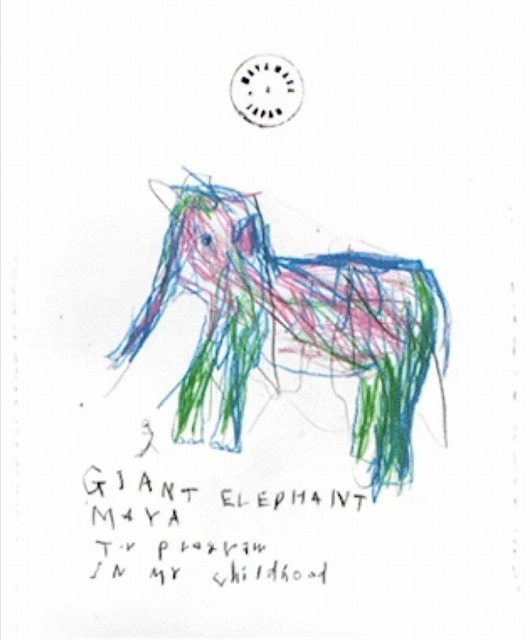 MAYAMAXX
JAPAN
GIANT ELEPHANT
MAYA
TV program
IN my childhood